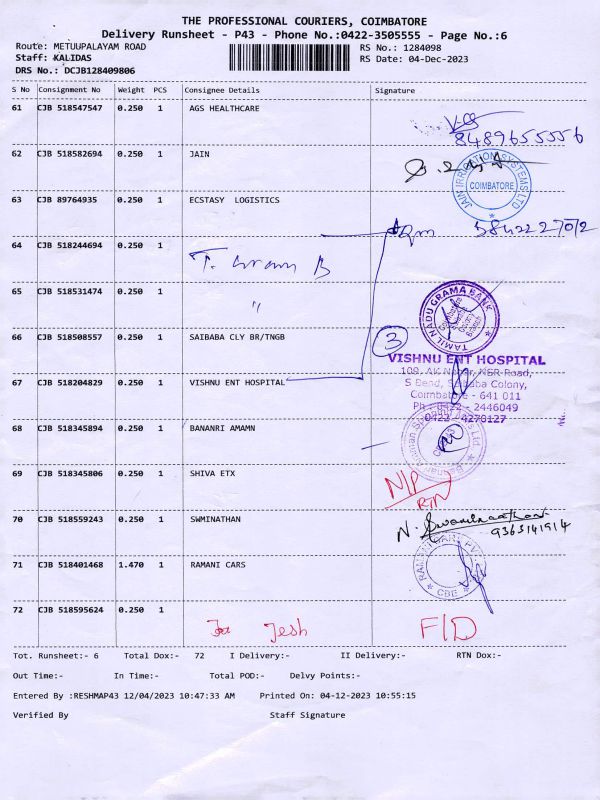 THE PROFESSIONAL COURIERS, COIMBATORE
Delivery Runsheet - P43 - Phone No.:0422-3505555 - Page No.:6
Route: METUUPALAYAM ROAD RS No.: 1284098
Staff: KALIDAS RS Date: 04-Dec-2023
DRS No.: DCJB128409806
S No Consignment No Weight PCS Consignee Details Signature
61 CJB 518547547 0.250 1 AGS HEALTHCARE
8489655556
62 CJB 518582694 0.250 1 JAIN
JAIN IRRIGATION SYSTEMS LTD
COIMBATORE
63 CJB 89764935 0.250 1 ECSTASY LOGISTICS
64 CJB 518244694 0.250 1
65 CJB 518531474 0.250 1 "
TAMIL NADU GRAMA BANK
66 CJB 518508557 0.250 1 SAIBABA CLY BR/TNGB
3
VISHNU ENT HOSPITAL
109, AK Nagar, NSR Road,
67 CJB 518204829 0.250 1 VISHNU ENT HOSPITAL S Bend, Saibaba Colony,
Coimbatore - 641 011
Ph : 0422 - 2446049
0422 - 4270127
68 CJB 518345894 0.250 1 BANANRI AMAMN
69 CJB 518345806 0.250 1 SHIVA ETX
N/P
RTN
70 CJB 518559243 0.250 1 SWMINATHAN
9363141914
71 CJB 518401468 1.470 1 RAMANI CARS
CBE
72 CJB 518595624 0.250 1
Jesh F/D
Tot. Runsheet:- 6 Total Dox:- 72 I Delivery:- II Delivery:- RTN Dox:-
Out Time:- In Time:- Total POD:- Delvy Points:-
Entered By :RESHMAP43 12/04/2023 10:47:33 AM Printed On: 04-12-2023 10:55:15
Verified By Staff Signature